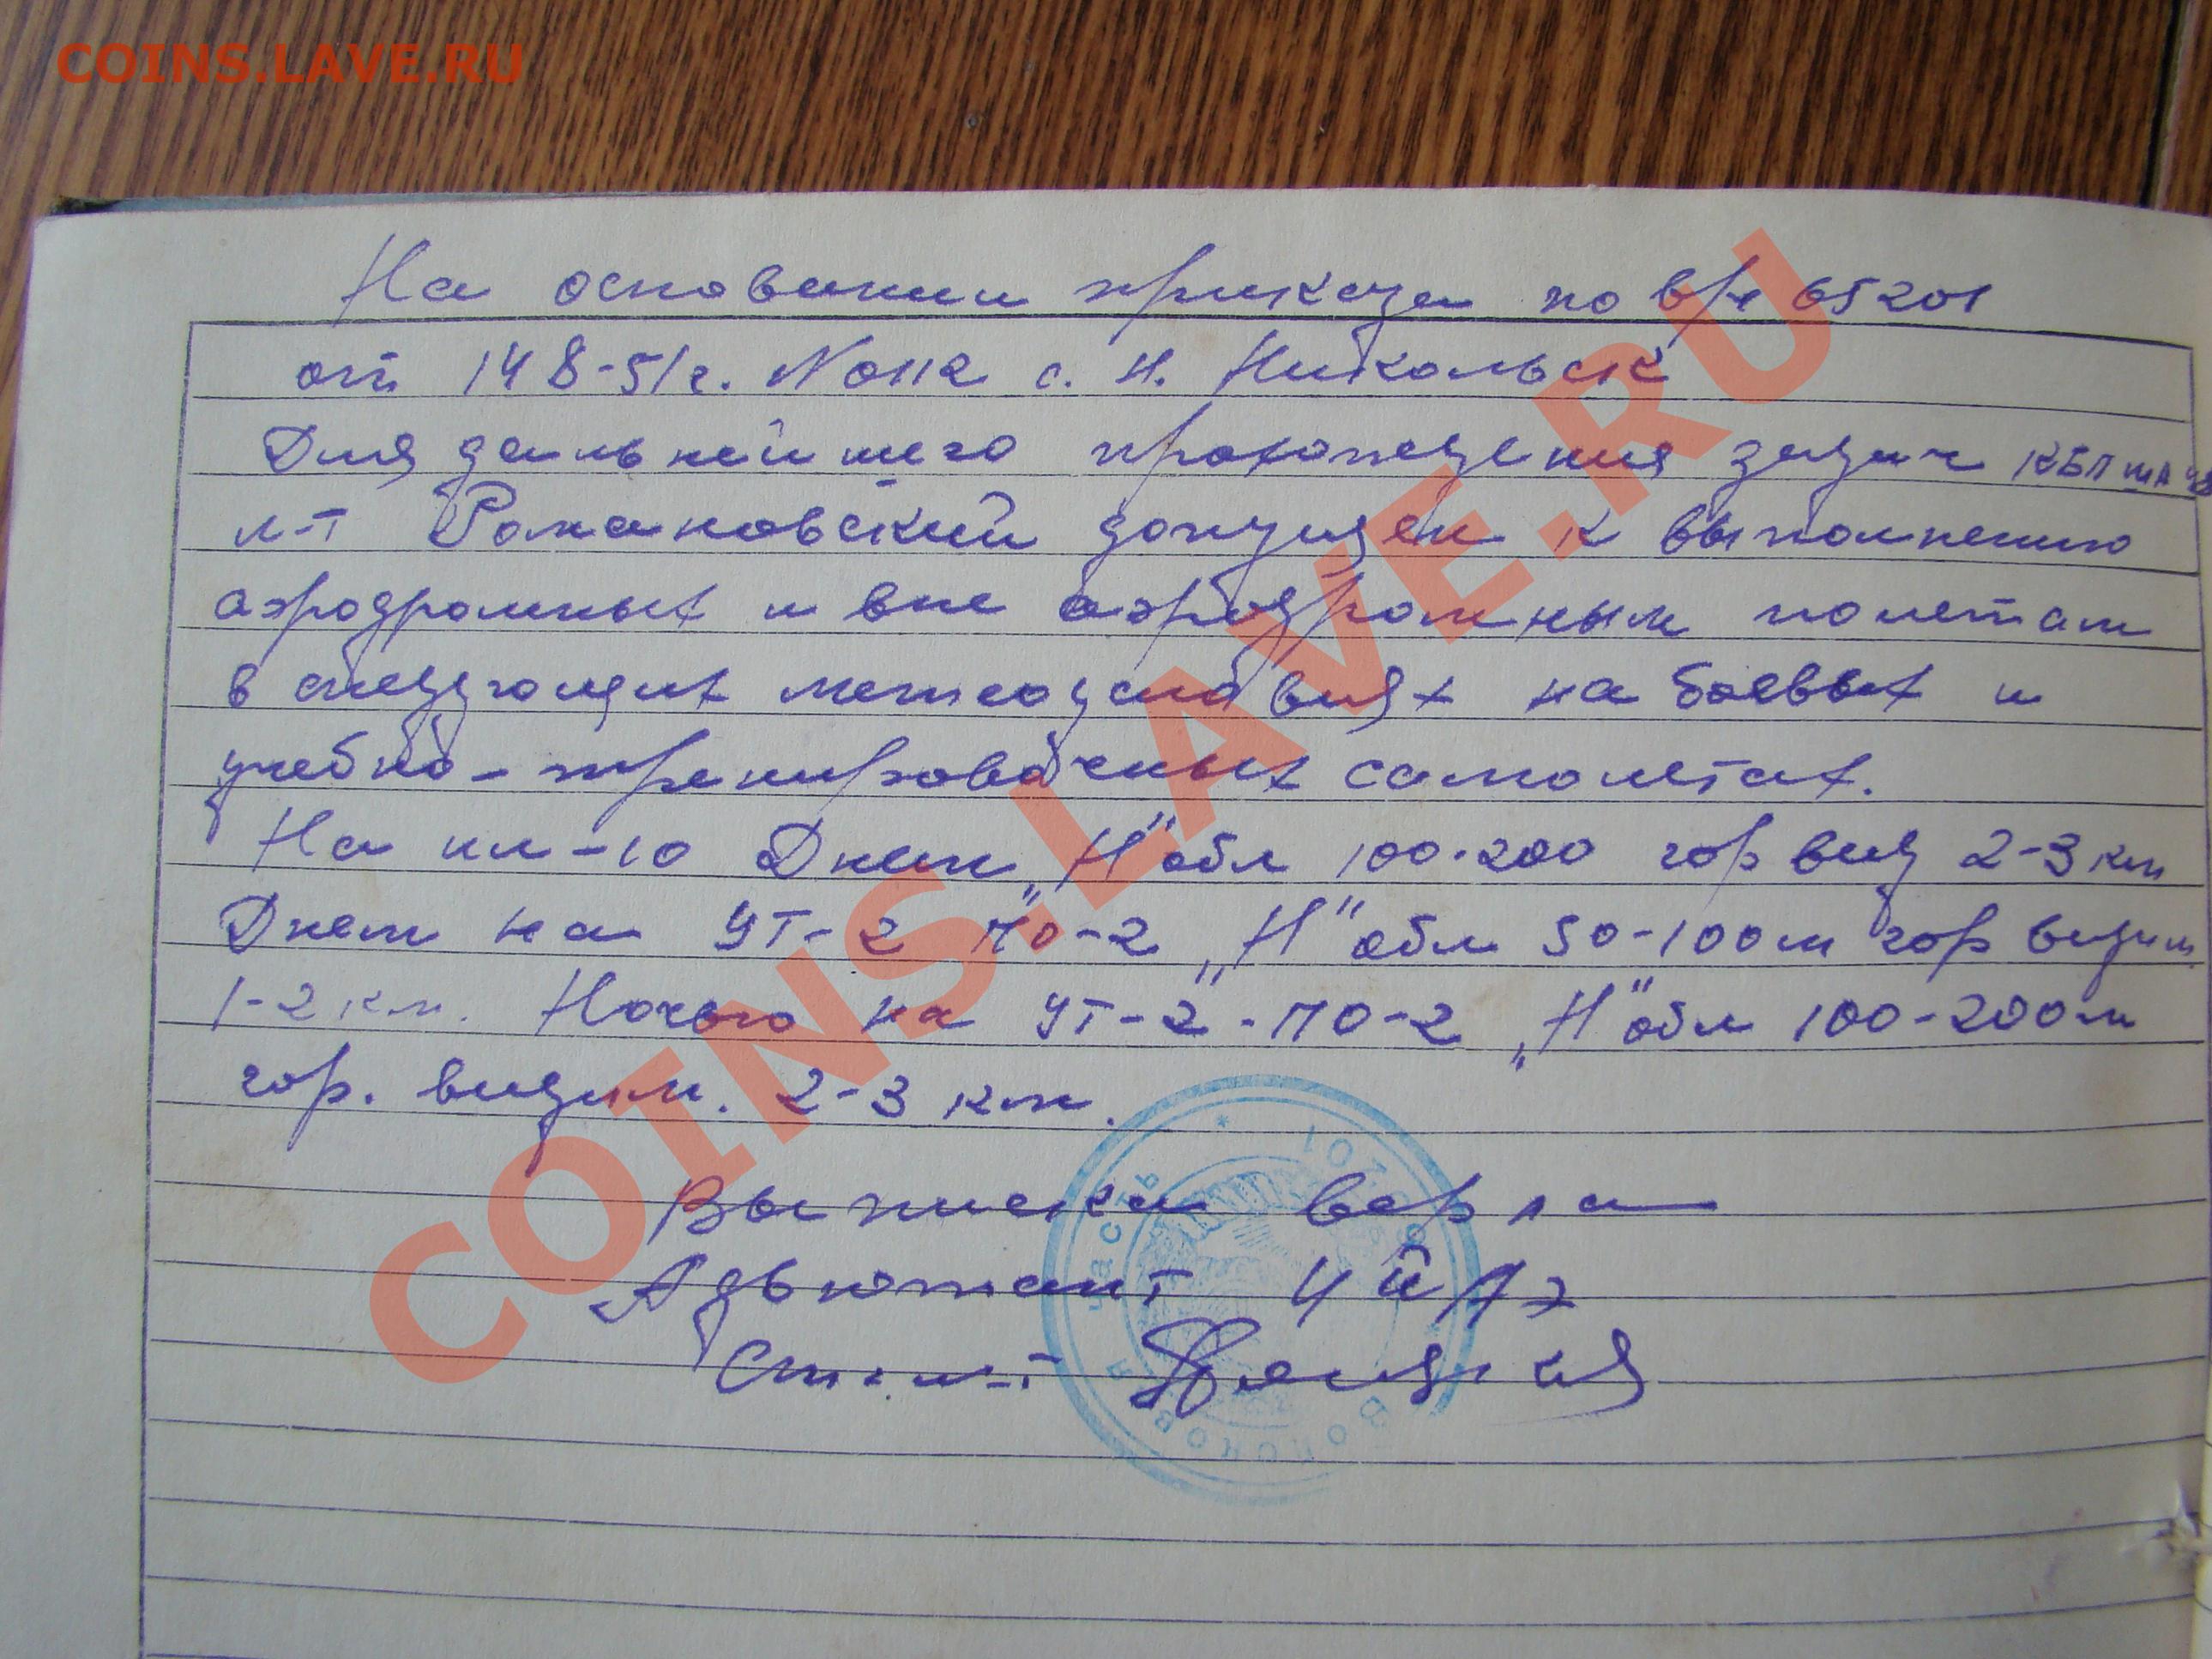 COINS.LAVE.RU
На основании приказа по в/ч 65201
от 14 8-51г. No 112 с. Н. Никольск
Для дальнейшего прохождения задач КБП ША
л-т Романовский допущен к выполнению
аэродромных и вне аэродромным полетам
в следующих метеоусловиях на боевых и
учебно-тренировочных самолетах.
На ил-10 Днем „Н" обл 100-200 гор вид 2-3 км
Днем на УТ-2 ПО-2 „Н" обл 50-100м гор видим
1-2 км. Ночью на УТ-2 - ПО-2 „Н" обл 100-200м
гор. видим. 2-3 км.
Выписка верна
Адъютант 4й АЭ
Ст. л-т
COINS.LAVE.RU